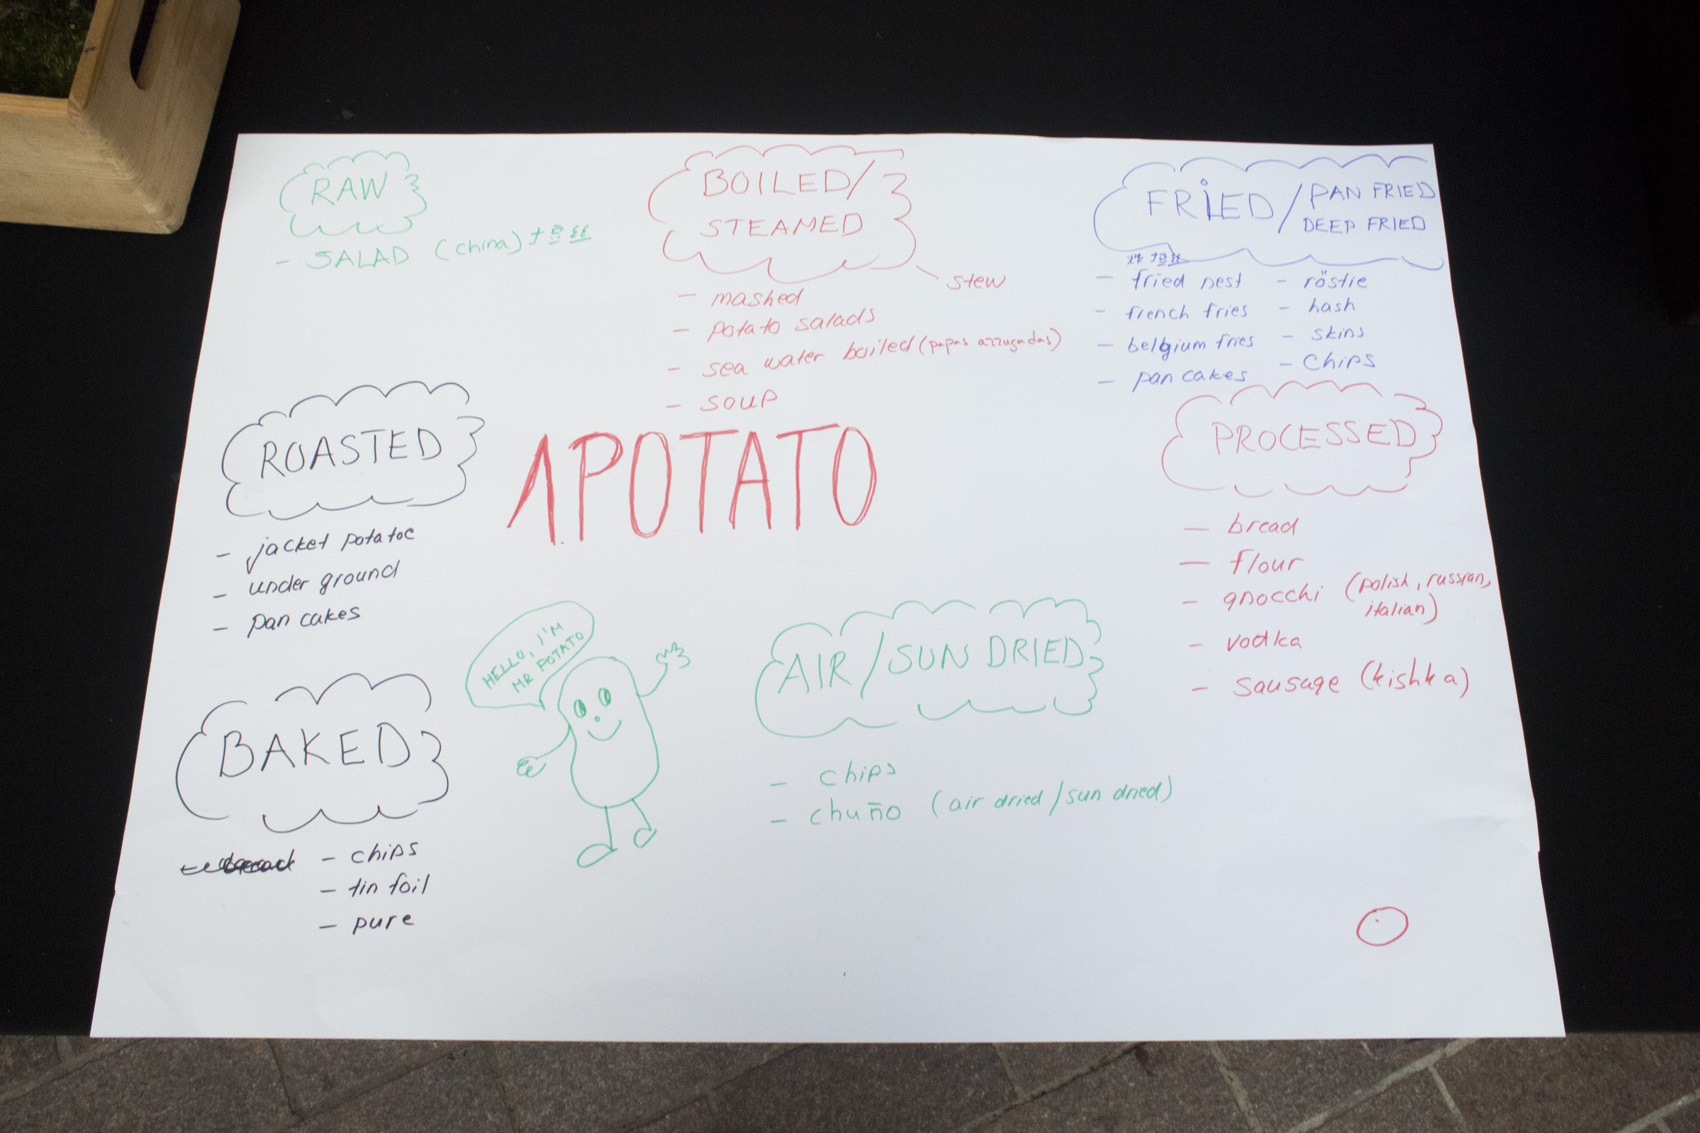 RAW
- SALAD (china) 土豆丝
BOILED/
STEAMED
stew
- mashed
- potato salads
- sea water boiled (papas arrugadas)
- soup
FRIED / PAN FRIED
DEEP FRIED
炸土豆丝
- fried nest
- french fries
- belgium fries
- pan cakes
- röstie
- hash
- skins
- Chips
ROASTED
- jacket potatoe
- under ground
- pan cakes
1.POTATO
PROCESSED
- bread
- flour
- gnocchi (polish, russian,
italian)
- vodka
- sausage (kishka)
BAKED
- chips
- tin foil
- pure
HELLO, I'M
MR POTATO
AIR/SUN DRIED
- chips
- chuño (air dried/sun dried)